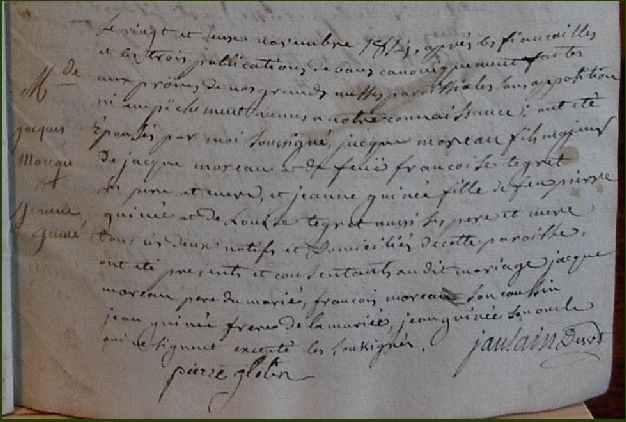 Le vingt et deux novembre 1814, après les fiancailles
et les trois publications de bans canoniquement faites
aux prônes de nos grandes messes paroissiales sans opposition
ni empêchement venus a notre connaissance; ont été
Epousés par moi soussigné, jacque moreau fils majeur
de jacque moreau et de feüe francoise legret
ses pere et mere, et jeanne guinée fille de feu pierre
guinée et de Louise legret aussi ses pere et mere
tous les deux natifs et domiciliés de cette paroisse,
ont été presents et consentants au dit mariage jacque
moreau pere du marié, francois moreau son coussin
jean guinée freres de la mariée, jean guinée son oncle
qui ne signent excepté les soussignés.
M de
jacques
Moreau
et
Jeanne
Guiné
pierre
jaulain Dess